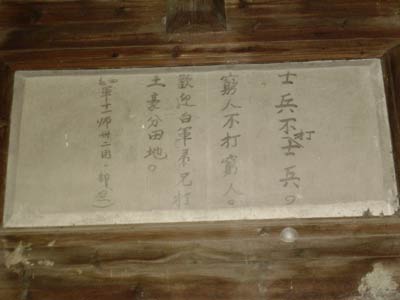 士兵不打士兵。
窮人不打窮人。
歡迎白軍弟兄打
土豪分田地。
紅四軍十一師卅二团·部(宣)